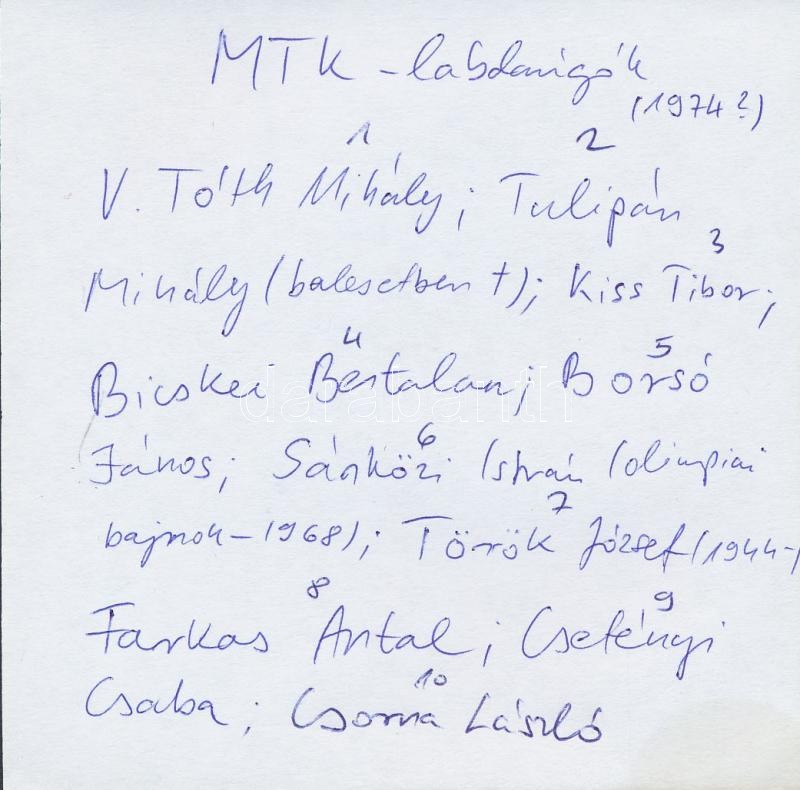 MTK - labdarúgók
(1974?)
1 2
V. Tóth Mihály; Tulipán
3
Mihály (balesetben †); Kiss Tibor;
4 5
Bicskei Bertalan; Borsó
6
János; Sárközi István (olimpiai
7
bajnok - 1968); Török József (1944-)
8 9
Farkas Antal; Csetényi
10
Csaba; Csorna László
darabanth